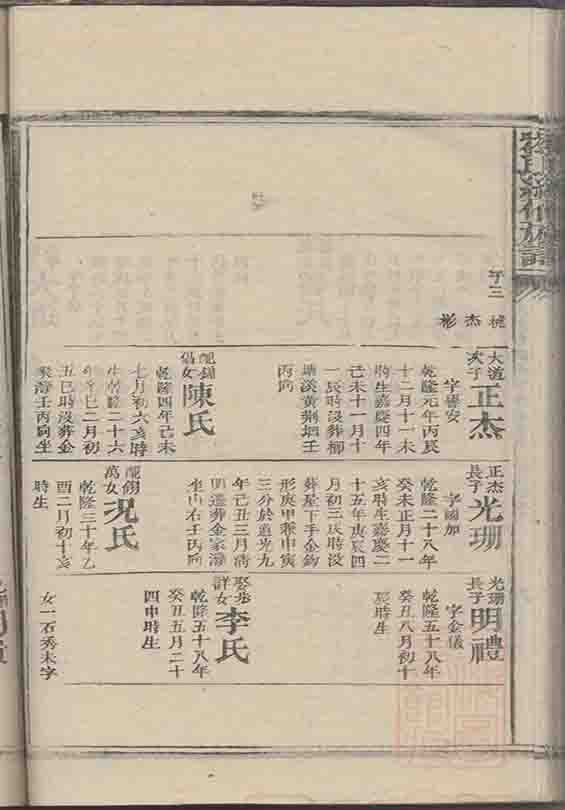 子三
桄
杰
彬
大道
次子
正杰
字譽安
乾隆元年丙辰
十二月十一未
時生嘉慶四年
己未十一月十
一辰時没葬柳
塘溪黄荆堋壬
丙向
陳氏
乾隆四年己未
七月初六亥時
生乾隆二十六
年辛巳二月初
五巳時没葬金
家灣壬丙向坐
正杰
長子
光珊
字國加
乾隆二十八年
癸未正月十一
亥時生嘉慶二
十五年庚辰四
月初三辰時没
葬屋下手金鈎
形庚甲兼申寅
三分於道光九
年己丑三月清
明遷葬金家灣
坐山右壬丙向
萬女
况氏
乾隆三十年乙
酉二月初十亥
時生
光珊
長子
明禮
字金儀
乾隆五十八年
癸丑八月初十
時生
娶
詳女
李氏
乾隆五十八年
癸丑五月二十
四申時生
女一石秀未字